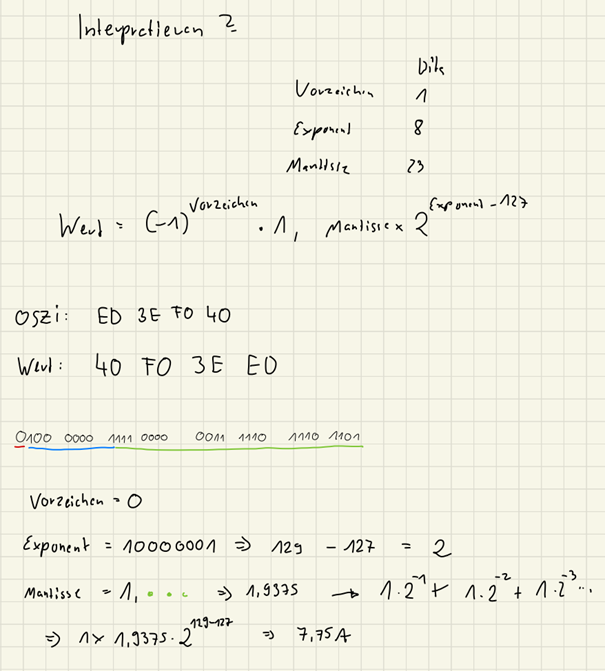 Interpretieren ?
Bits
Vorzeichen 1
Exponent 8
Mantisse 23
Wert = (-1)^Vorzeichen · 1, Mantisse x 2^Exponent - 127
OSZI: ED 3E F0 40
Wert: 40 F0 3E ED
0100 0000 1111 0000 0011 1110 1110 1101
Vorzeichen = 0
Exponent = 10000001 ⇒ 129 - 127 = 2
Mantisse = 1, ... ⇒ 1,9375 → 1·2^-1 + 1·2^-2 + 1·2^-3 ...
⇒ 1 x 1,9375 · 2^129-127 ⇒ 7,75A